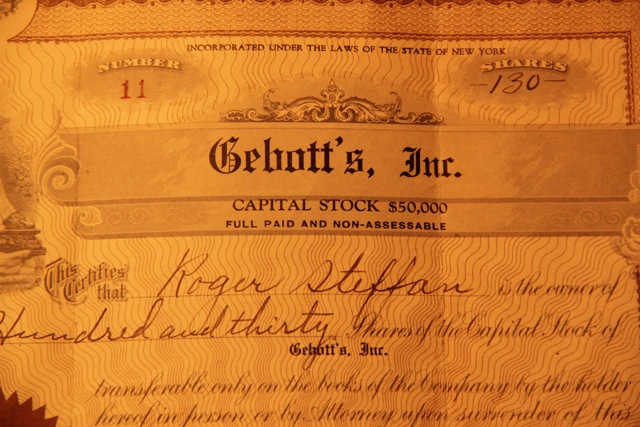 INCORPORATED UNDER THE LAWS OF THE STATE OF NEW YORK
NUMBER
11
SHARES
-130-
Gebott's, Inc.
CAPITAL STOCK $50,000
FULL PAID AND NON-ASSESSABLE
This Certifies that Roger Steffan is the owner of
Hundred and thirty Shares of the Capital Stock of
Gebott's, Inc.
transferable only on the books of the Company by the holder
hereof in person or by Attorney upon surrender of this